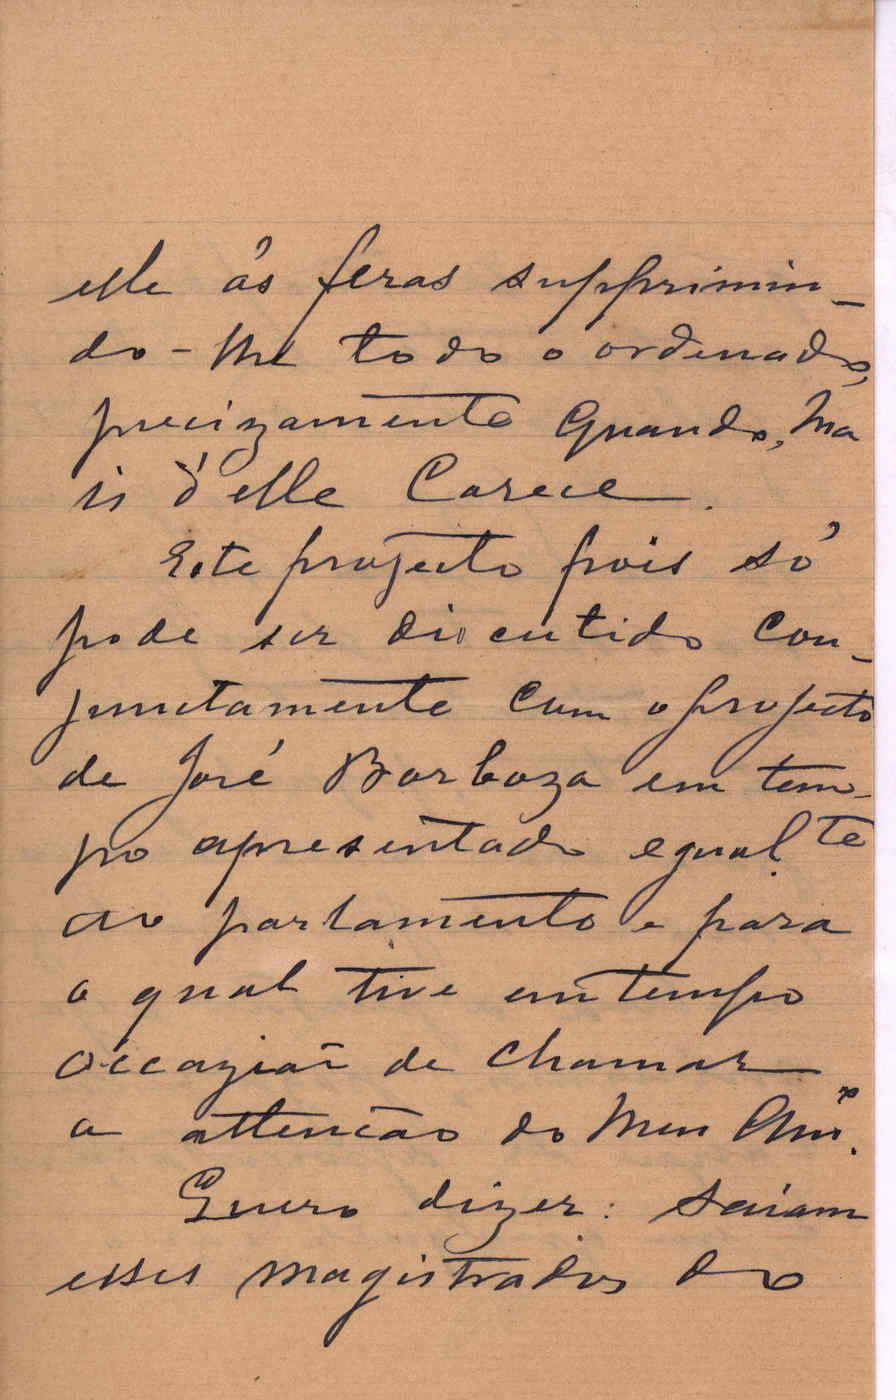 elle ás feras supprimin-
do-lhe todo o ordenado,
precizamente quando, ma
is d'elle carece.
Este projecto pois só
pode ser discutido con-
junctamente com o projecto
de José Barboza em tem-
po apresentado egual.te
ao parlamento e para
o qual tive em tempo
occazião de chamar
a attenção do Meu Am.º
Quero dizer: saiam
esses magistrados do